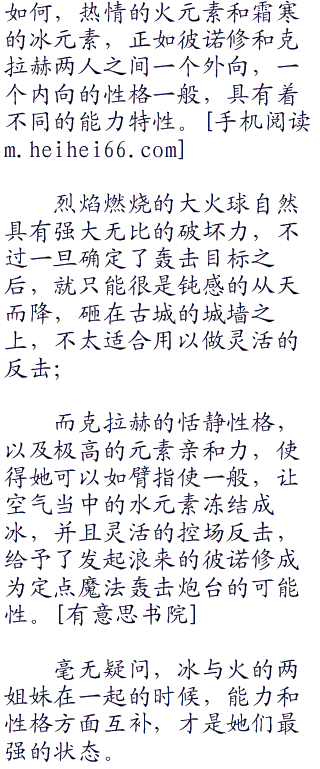 如何，热情的火元素和霜寒
的冰元素，正如彼诺修和克
拉赫两人之间一个外向，一
个内向的性格一般，具有着
不同的能力特性。[手机阅读
m.heihei66.com]
烈焰燃烧的大火球自然
具有强大无比的破坏力，不
过一旦确定了轰击目标之
后，就只能很是钝感的从天
而降，砸在古城的城墙之
上，不太适合用以做灵活的
反击;
而克拉赫的恬静性格，
以及极高的元素亲和力，使
得她可以如臂指使一般，让
空气当中的水元素冻结成
冰，并且灵活的控场反击，
给予了发起浪来的彼诺修成
为定点魔法轰击炮台的可能
性。[有意思书院]
毫无疑问，冰与火的两
姐妹在一起的时候，能力和
性格方面互补，才是她们最
强的状态。